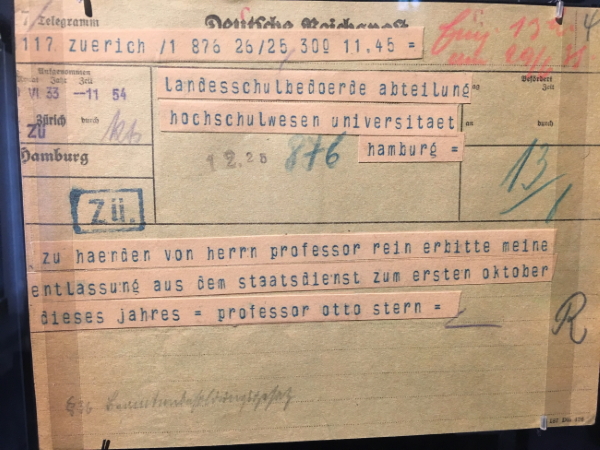 Telegramm Deutsche Reichspost
117 zuerich /1 876 26/25 300 11.45 =
Aufgenommen
Zeit
VI 33 --11 54
Zürich durch
Zü
Hamburg
landesschulbedoerde abteilung
hochschulwesen universitaet
hamburg =
Befördert
Zeit
durch
12.25
876
13
4
Zü.
zu haenden von herrn professor rein erbitte meine
entlassung aus dem staatsdienst zum ersten oktober
dieses jahres = professor otto stern =
R